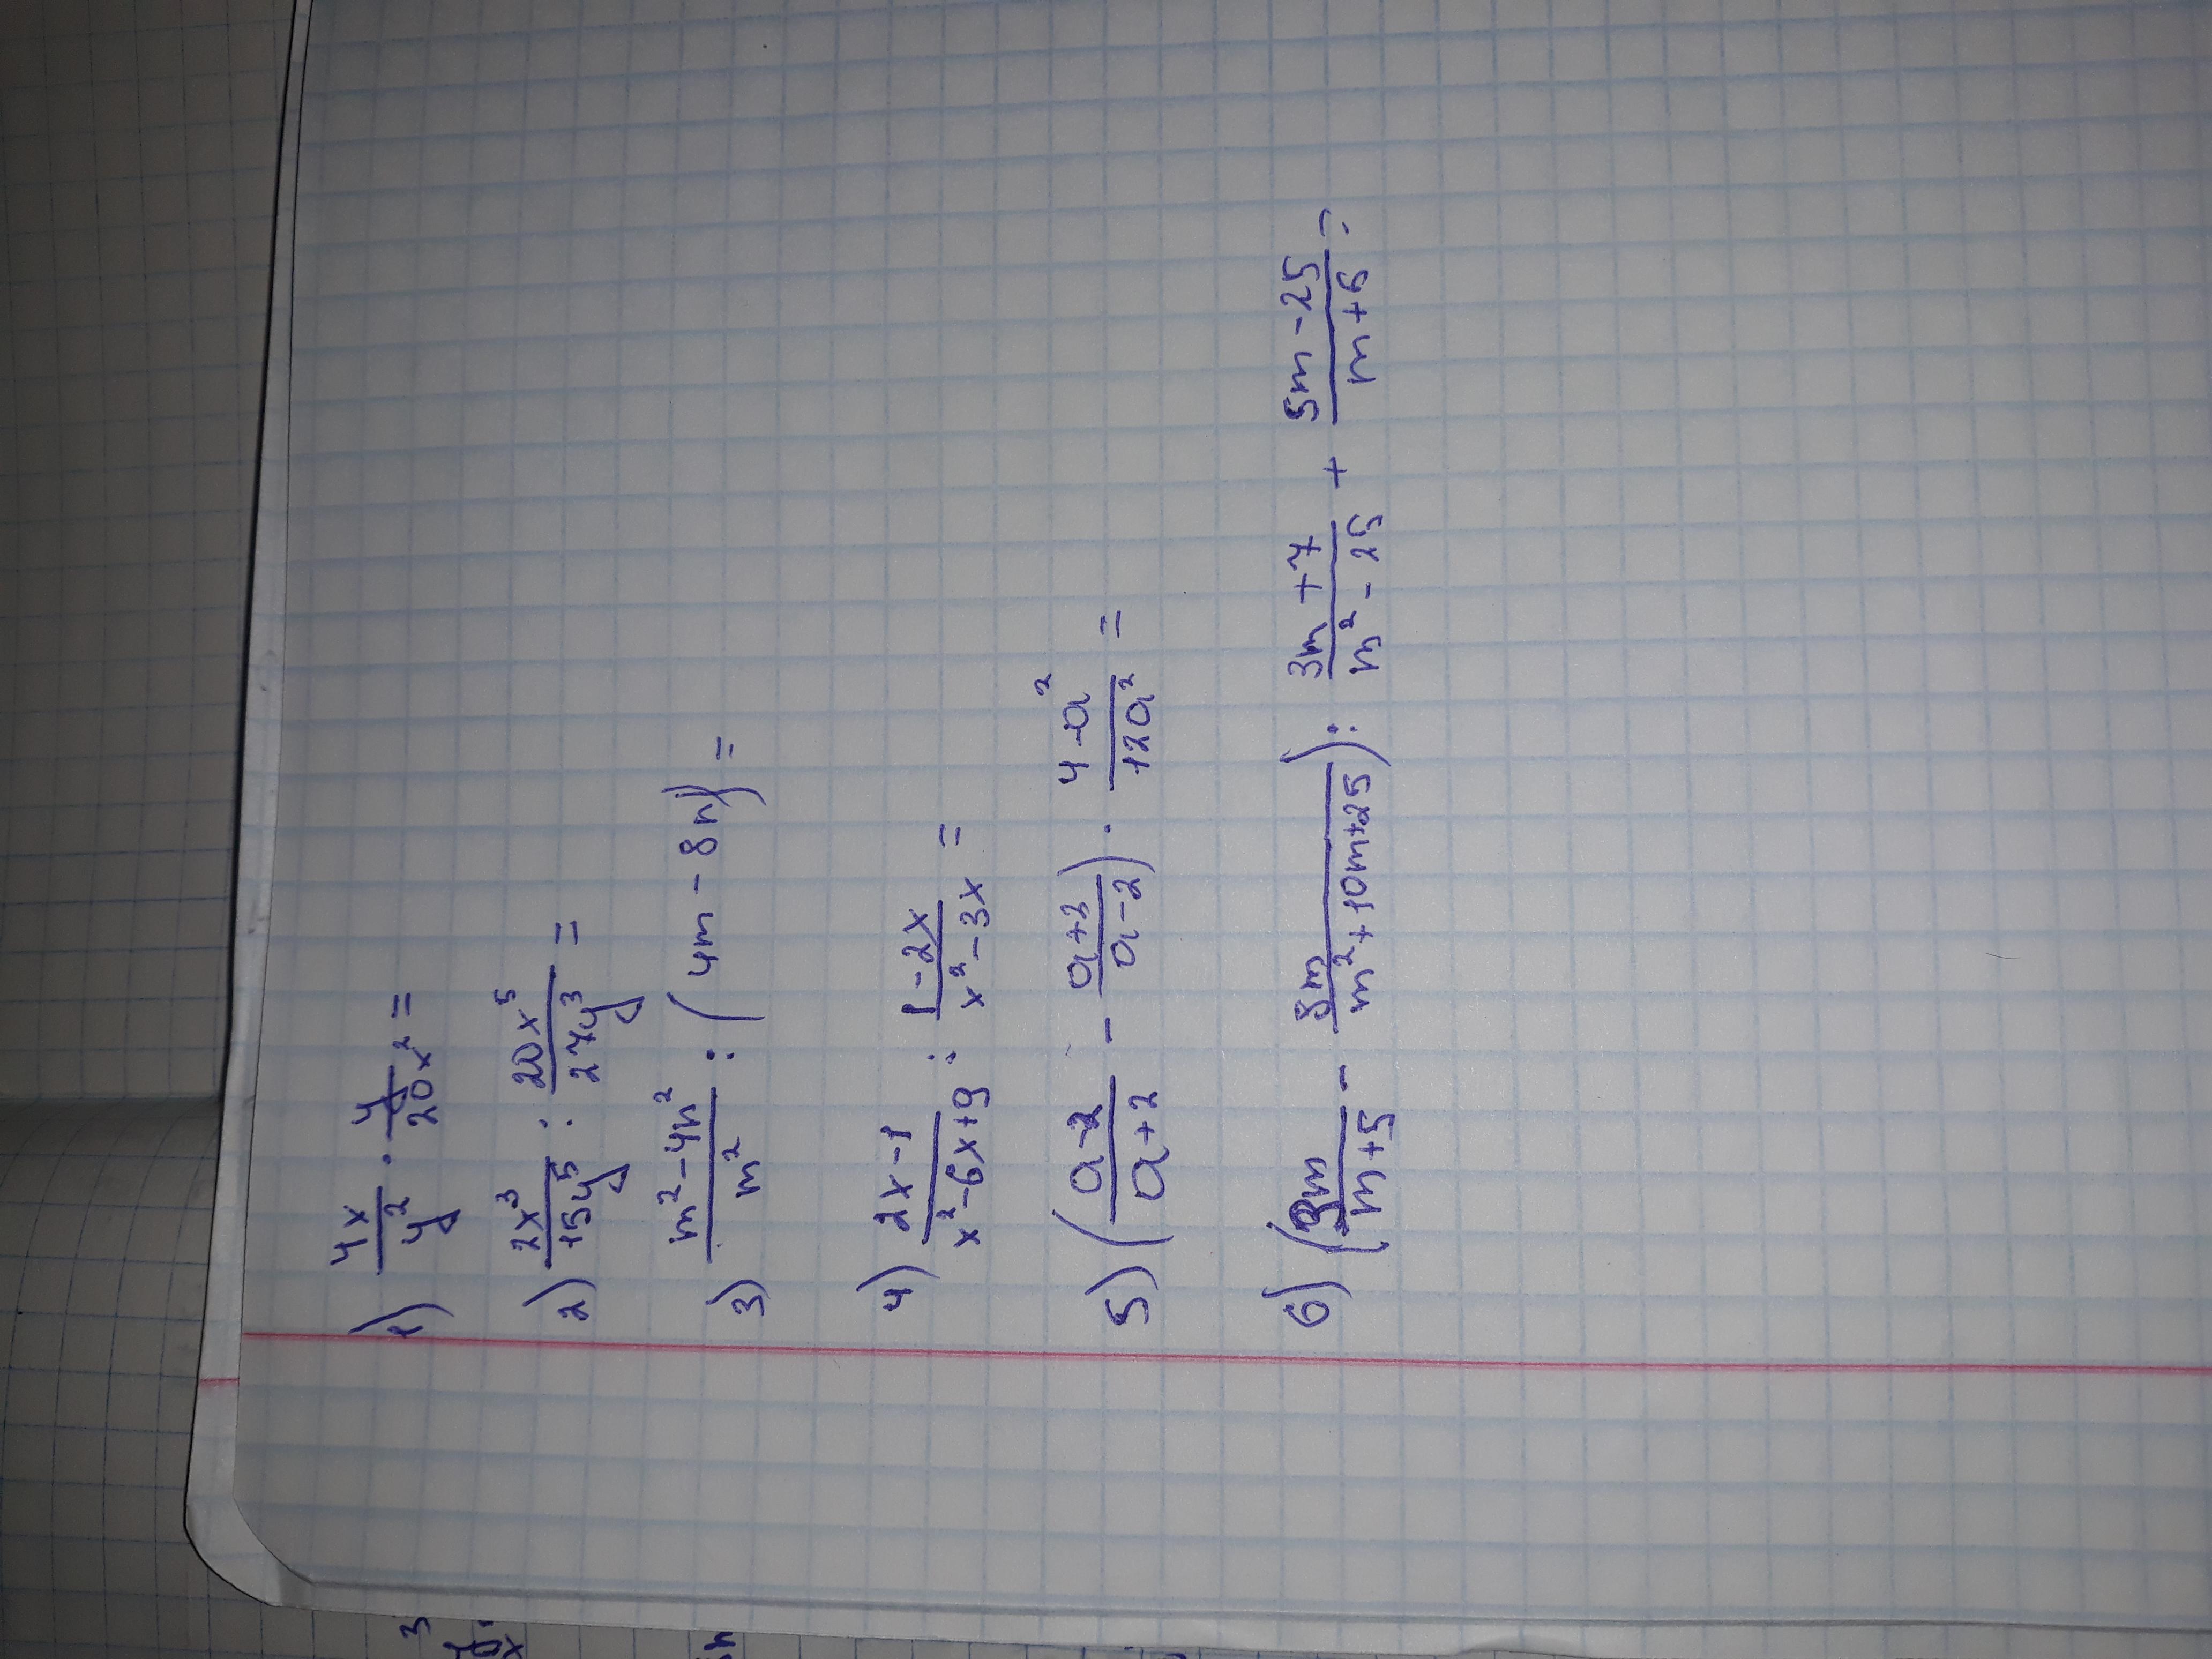 1) 4x/y² · y/20x² =
2) 2x³/15y⁵ : 20x⁵/27y³ =
3) m²-4n²/m² : (4m-8n) =
4) 2x-1/x²-6x+9 : 1-2x/x²-3x =
5) (a-2/a+2 - a+2/a-2) · 4-a²/12a² =
6) (3m/m+5 - 8m/m²+10m+25) : 3m+7/m²-25 + 5m-25/m+5 =